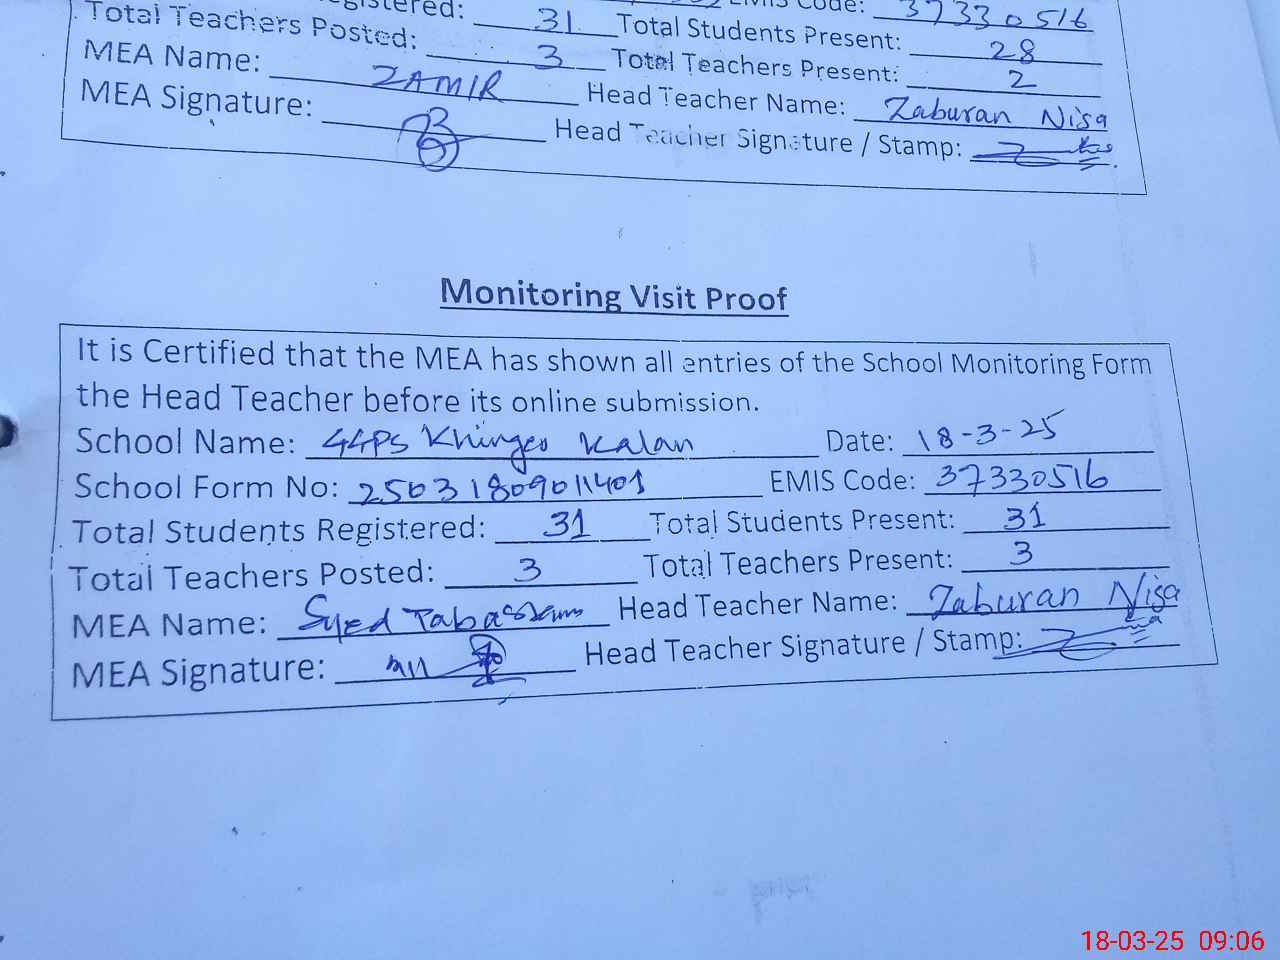 Registered: 31 EMIS Code: 37330516
Total Teachers Posted: 3 Total Students Present: 28
MEA Name: ZAMIR Total Teachers Present: 2
MEA Signature: Head Teacher Name: Zaburan Nisa
Head Teacher Signature / Stamp:
Monitoring Visit Proof
It is Certified that the MEA has shown all entries of the School Monitoring Form
the Head Teacher before its online submission.
School Name: GGPS Khinger Kalan Date: 18-3-25
School Form No: 25031809011401 EMIS Code: 37330516
Total Students Registered: 31 Total Students Present: 31
Total Teachers Posted: 3 Total Teachers Present: 3
MEA Name: Syed Tabassam Head Teacher Name: Zaburan Nisa
MEA Signature: Head Teacher Signature / Stamp:
18-03-25 09:06